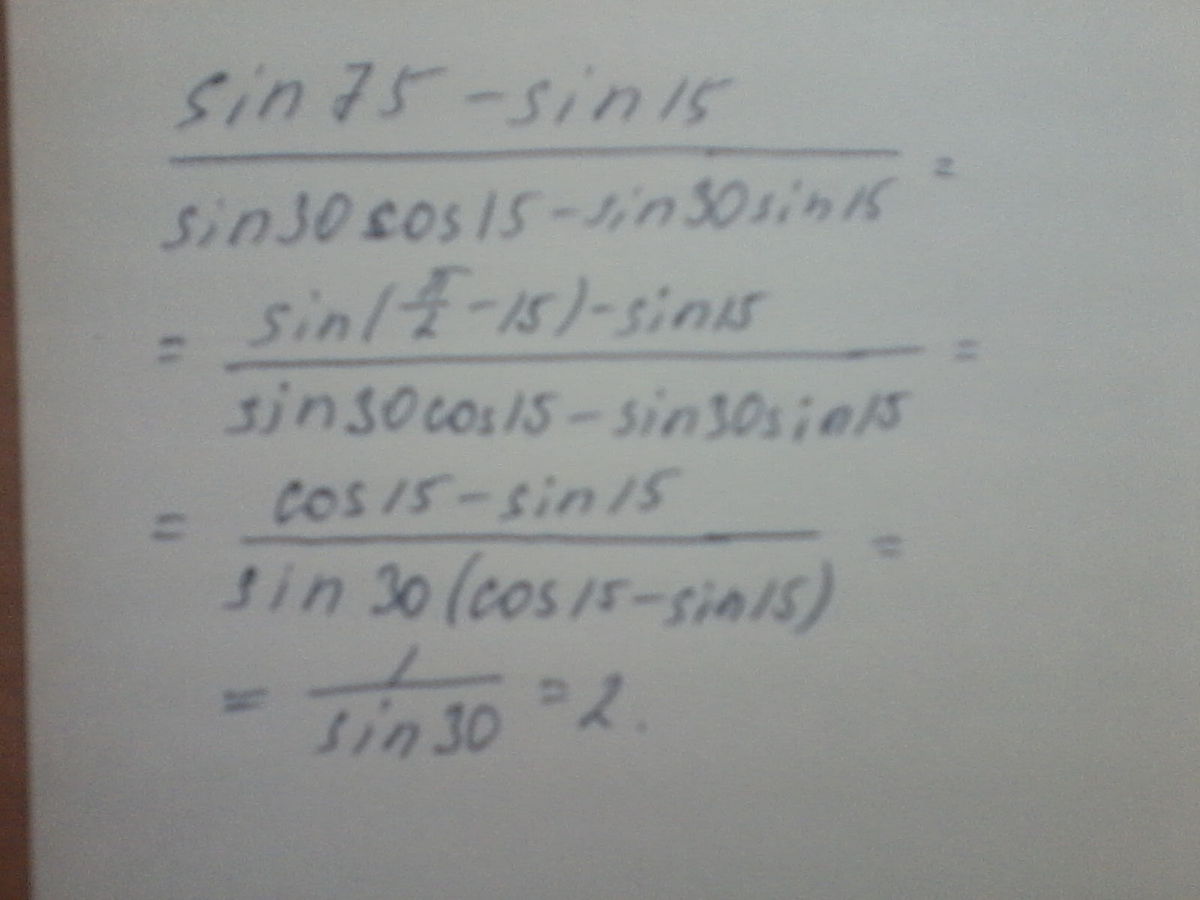 sin 75 - sin 15
sin30 cos15 - sin30 sin15 =
= sin(π/2 - 15) - sin15 =
sin30cos15 - sin30sin15
= cos 15 - sin 15 =
sin 30 (cos15 - sin15)
= 1/sin30 = 2.